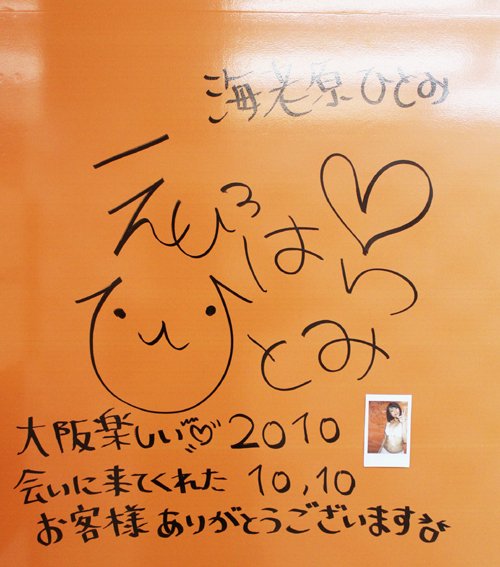 海老原ひとみ
えびはら♡
ひとみ
大阪楽しい♡ 2010
会いに来てくれた 10,10
お客様ありがとうございます